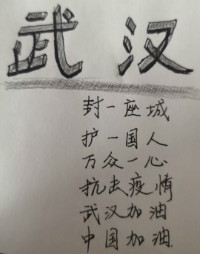 武汉
封一座城
护一国人
万众一心
抗击疫情
武汉加油
中国加油